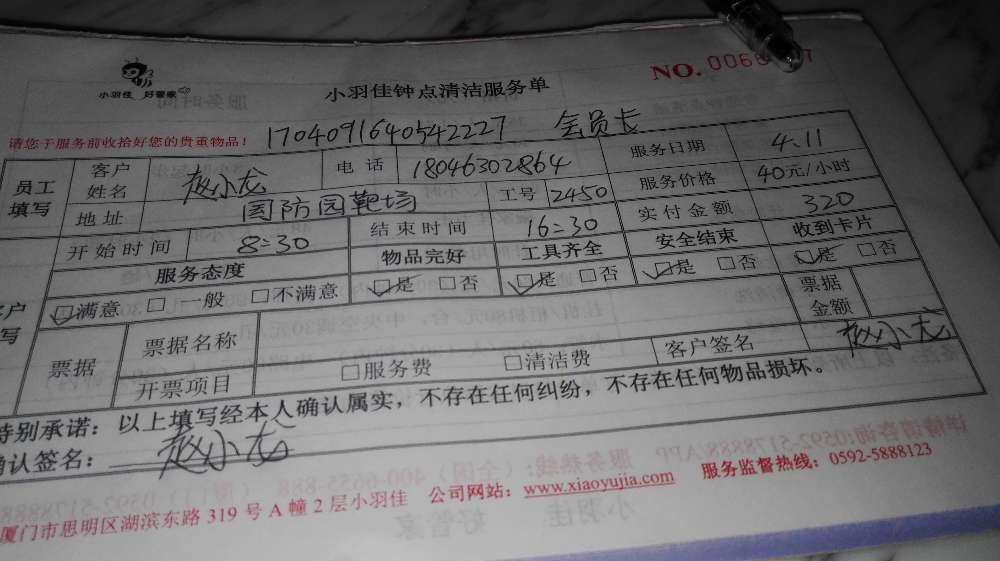 小羽佳 好管家
小羽佳钟点清洁服务单
NO.
请您于服务前收拾好您的贵重物品!
1704091640542227 会员卡
员工填写 客户姓名 赵小龙 电话 18046302864 服务日期 4.11
地址 国防园靶场 工号 2450 服务价格 40元/小时
开始时间 8:30 结束时间 16:30 实付金额 320
服务态度 物品完好 工具齐全 安全结束 收到卡片
☑满意 □一般 □不满意 ☑是 □否 ☑是 □否 ☑是 □否 ☑是 □否
票据 票据名称 票据金额
开票项目 □服务费 □清洁费 客户签名 赵小龙
特别承诺:以上填写经本人确认属实,不存在任何纠纷,不存在任何物品损坏。
确认签名: 赵小龙
厦门市思明区湖滨东路 319 号 A 幢 2 层小羽佳 公司网站:www.xiaoyujia.com 服务监督热线:0592-5888123